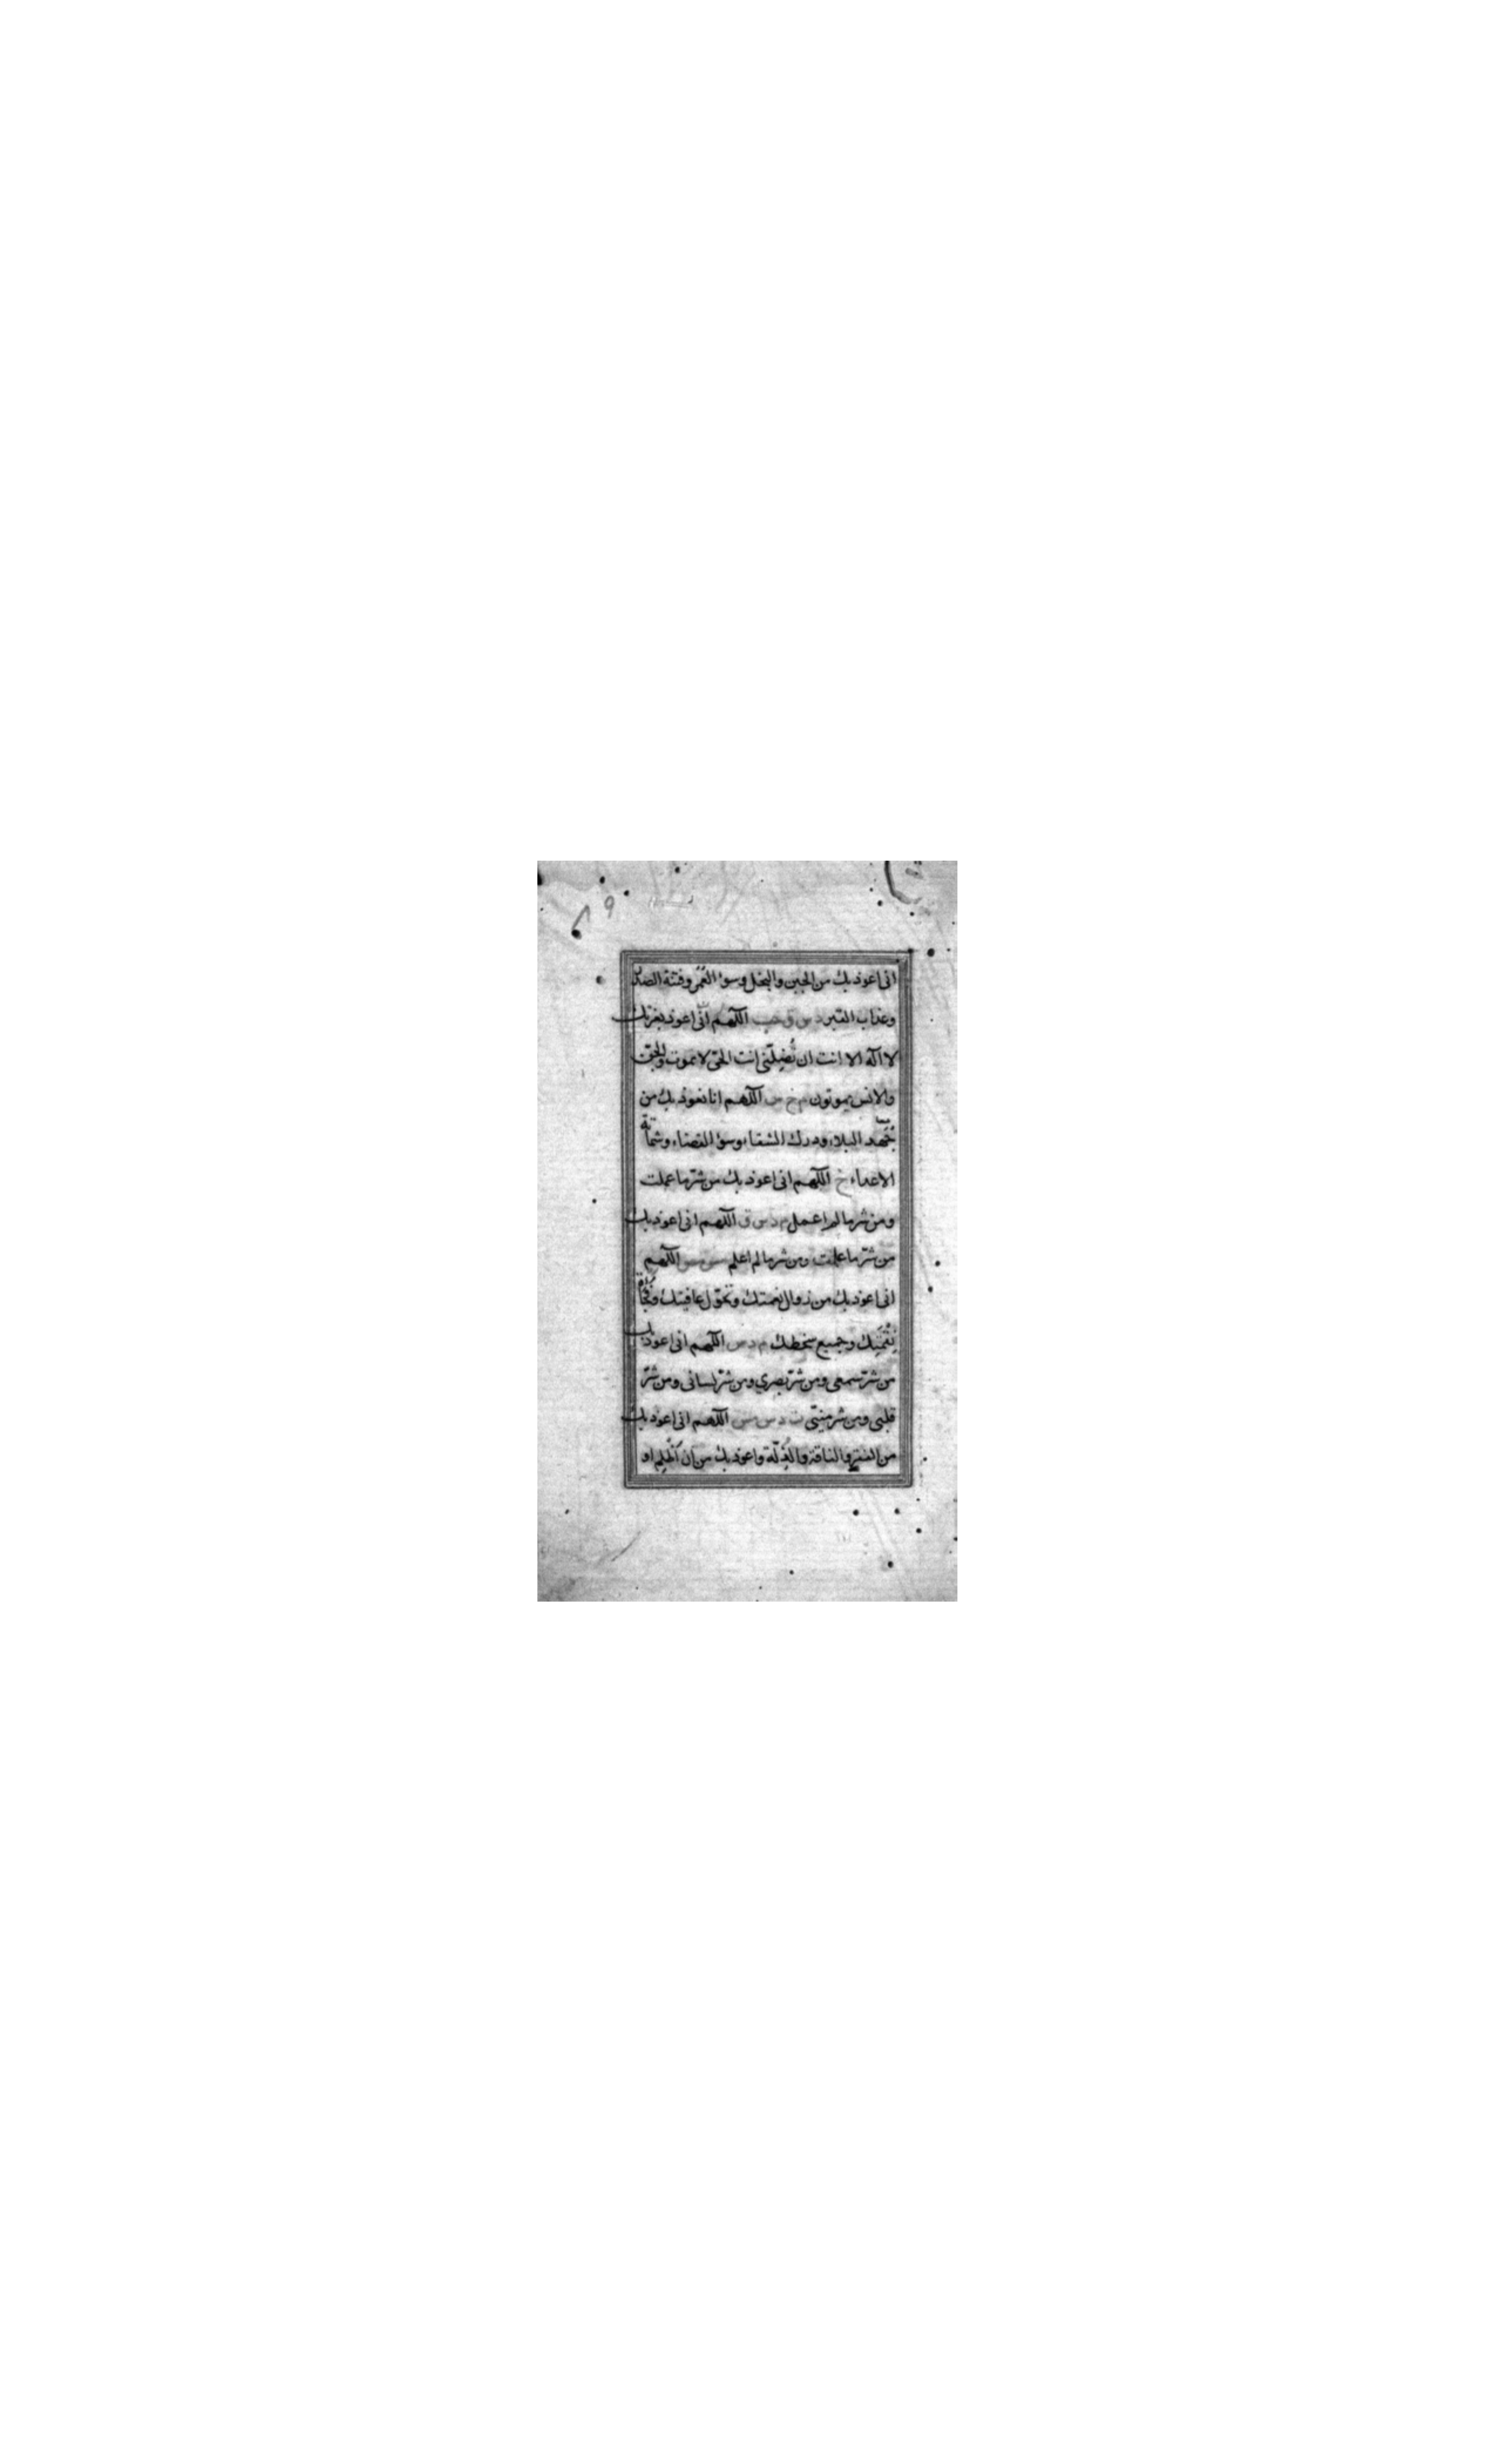 ٨٩
انى اعوذ بك من الجبن والبخل وسوء العُمُر وفتنة الصدر
وعذاب القبر د س ق حب اللّهم انّى اعوذ بعزتك
لا اله الا انت ان تُضِلّنى انت الحىّ لا تموت والجنّ
والانس يموتون م خ س اللّهم انا نعوذ بك من
جَُهد البلاء ودرك الشقاء وسوء القضاء وشماتة
الاعداء خ اللّهم انى اعوذ بك من شرّ ما عملت
ومن شر ما لم اعمل م د س ق اللّهم انى اعوذ بك
من شرّ ما علمت ومن شر ما لم اعلم اللّهم
انى اعوذ بك من زوال نعمتك وتحوّل عافيتك وفُجَاءَة
نِقْمَتِك وجميع سخطك م د س اللّهم انى اعوذ بك
من شرّ سمعى ومن شرّ بصرى ومن شرّ لسانى ومن شرّ
قلبى ومن شر منيّى ت د س مس اللّهم انى اعوذ بك
من الفقر والفاقة والذِّلّة واعوذ بك من ان اَظْلِم او